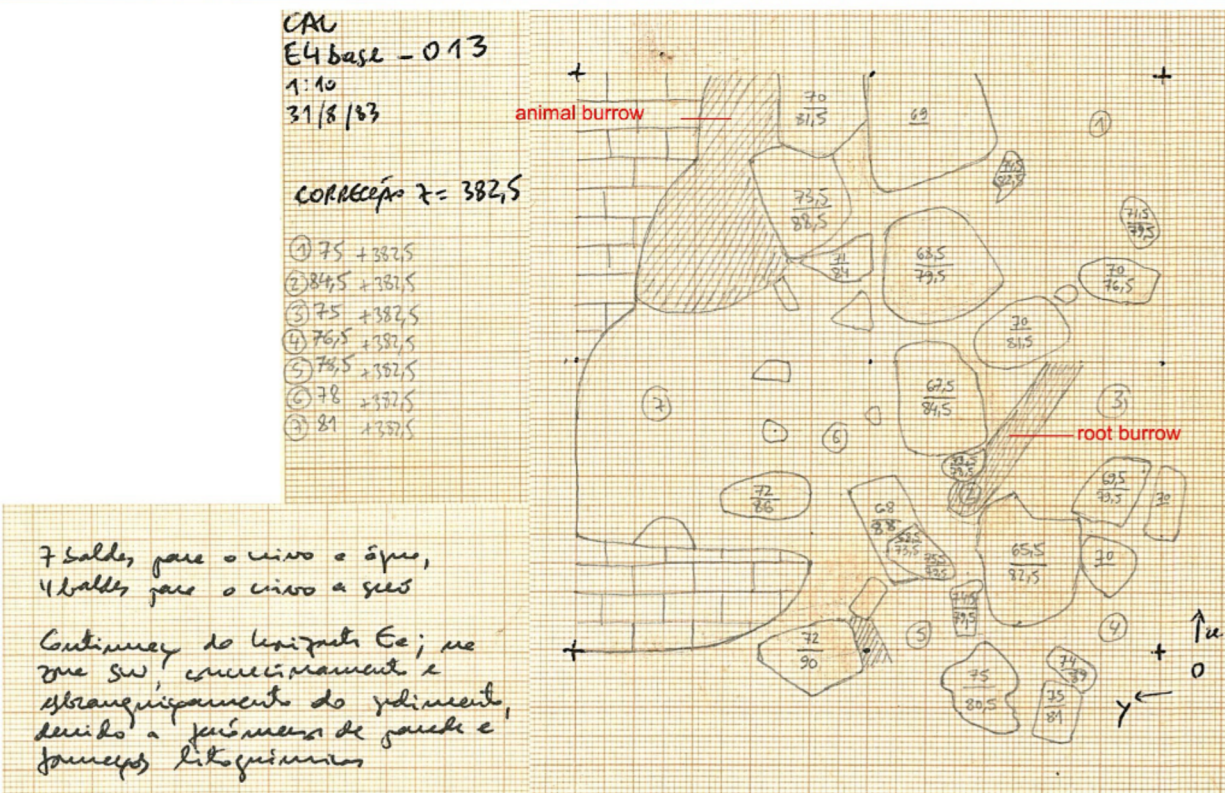 CAL
E4 base - 013
1:10
31/8/83
CORRECÇÃO Z = 382,5
① 75 +382,5
② 84,5 +382,5
③ 75 +382,5
④ 76,5 +382,5
⑤ 78,5 +382,5
⑥ 78 +382,5
⑦ 81 +382,5
7 baldes para o crivo a água,
4 baldes para o crivo a seco
Continuação do horizonte Ee; na
zona SW, concrecionamento e
esbranquiçamento do sedimento,
devido a fenómenos de parede e
litoquímicos
animal burrow
70
81,5
69
①
73,5
88,5
71,5
79,5
68,5
79,5
70
76,5
70
81,5
67,5
84,5
③
⑦
⑥
root burrow
72
86
68
88
69,5
79,5
70
65,5
82,5
70
⑤
④
72
90
75
80,5
74
89
75
81
Y
O